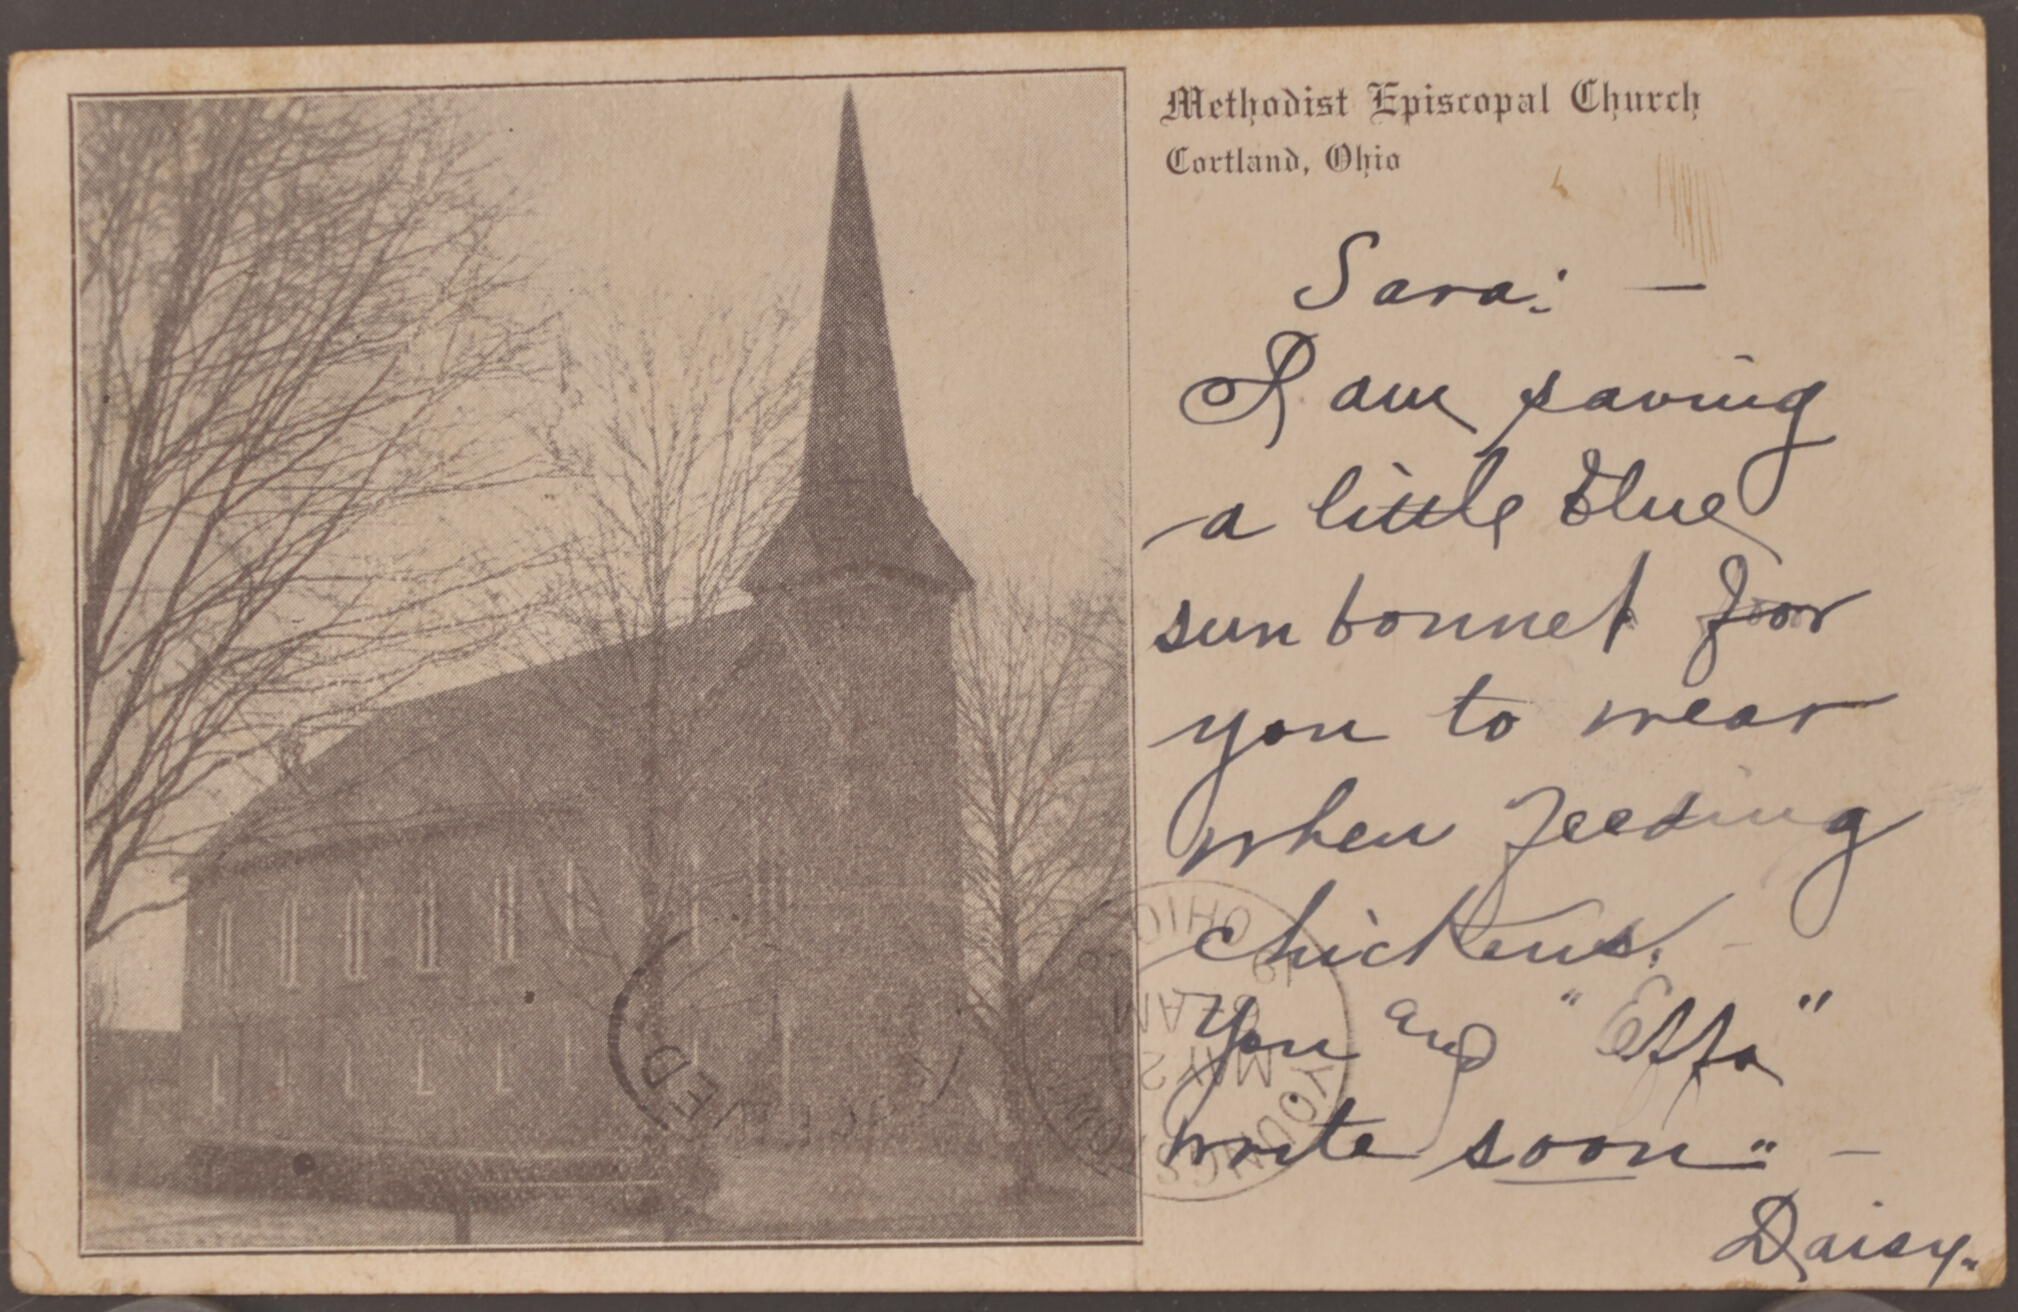 Methodist Episcopal Church
Cortland, Ohio
Sara: —
I am saving
a little blue
sun bonnet for
you to wear
when feeding
chickens. -
You and "Etta"
write soon.. —
Daisy..
OHIO
AM
MAY 2
YOUNGS